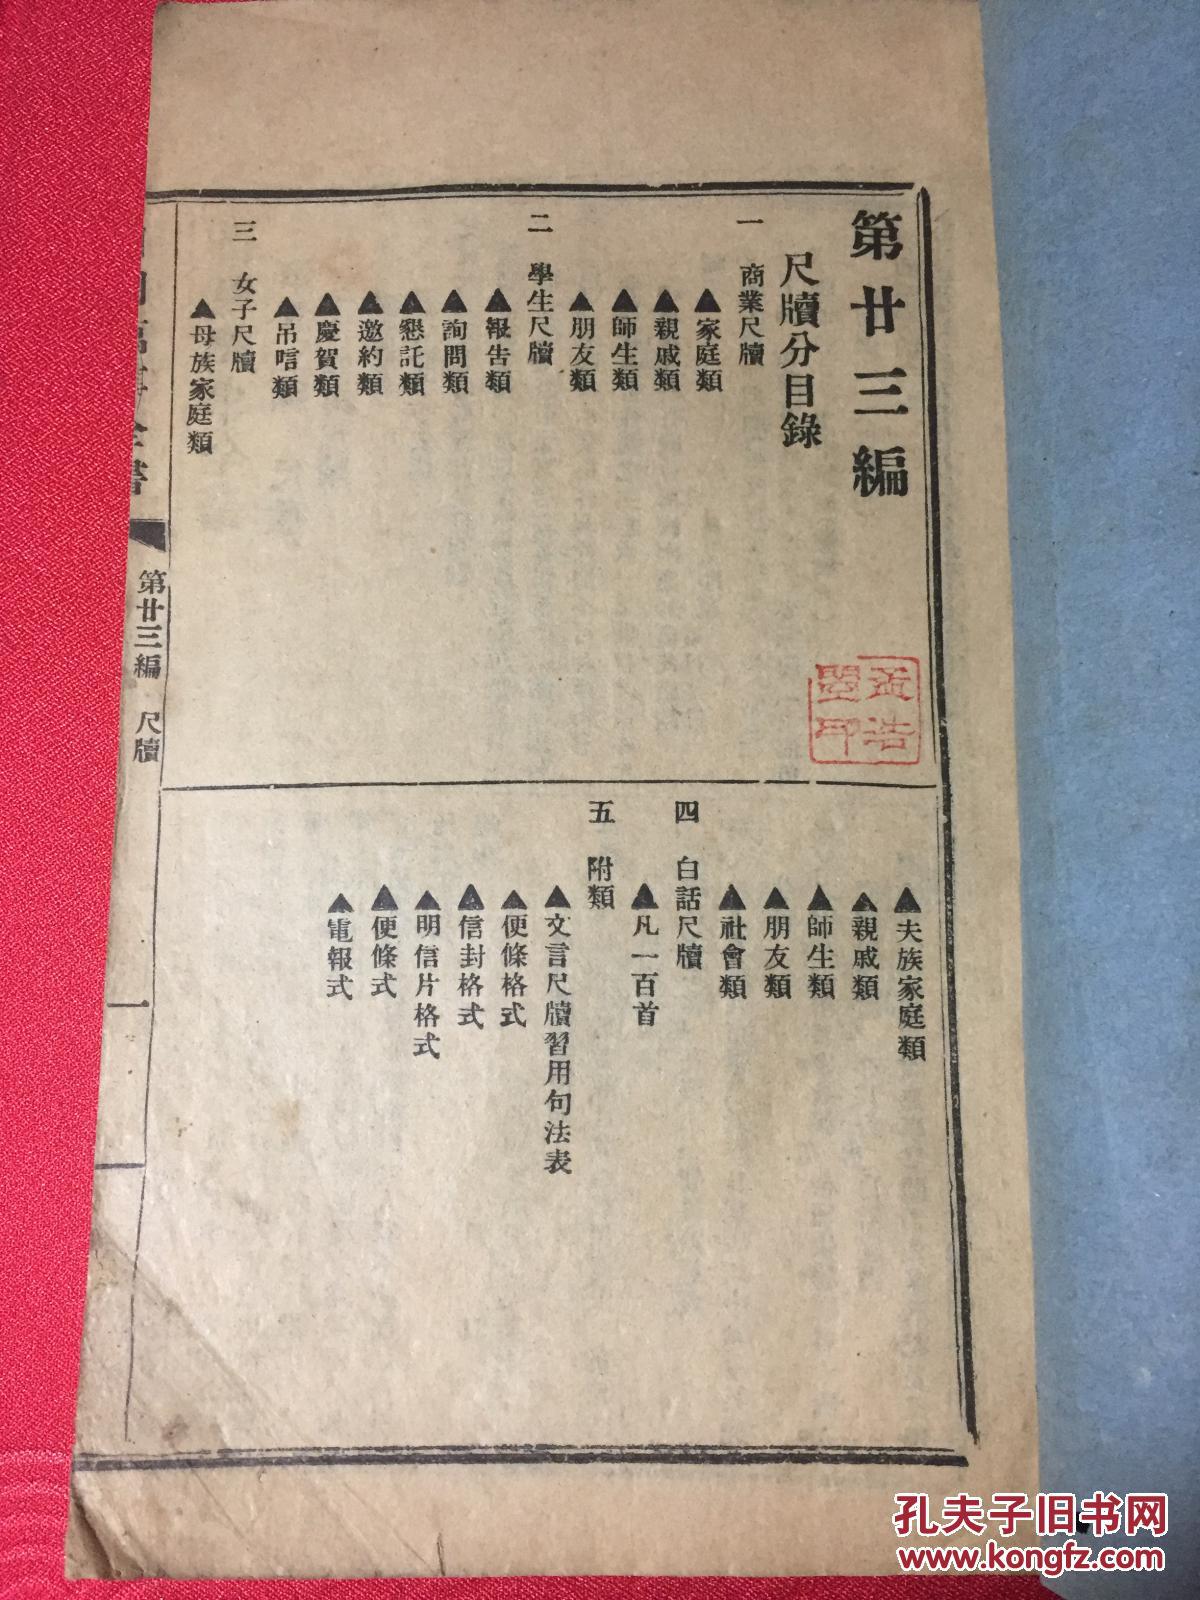 第廿三編
尺牘分目錄
一 商業尺牘
▲家庭類
▲親戚類
▲師生類
▲朋友類
二 學生尺牘
▲報告類
▲詢問類
▲懇託類
▲邀約類
▲慶賀類
▲吊唁類
三 女子尺牘
▲母族家庭類
▲夫族家庭類
▲親戚類
▲師生類
▲朋友類
▲社會類
四 白話尺牘
▲凡一百首
五 附類
▲文言尺牘習用句法表
▲便條格式
▲信封格式
▲明信片格式
▲便條式
▲電報式
全書
第廿三編 尺牘
一
孔夫子旧书网
www.kongfz.com